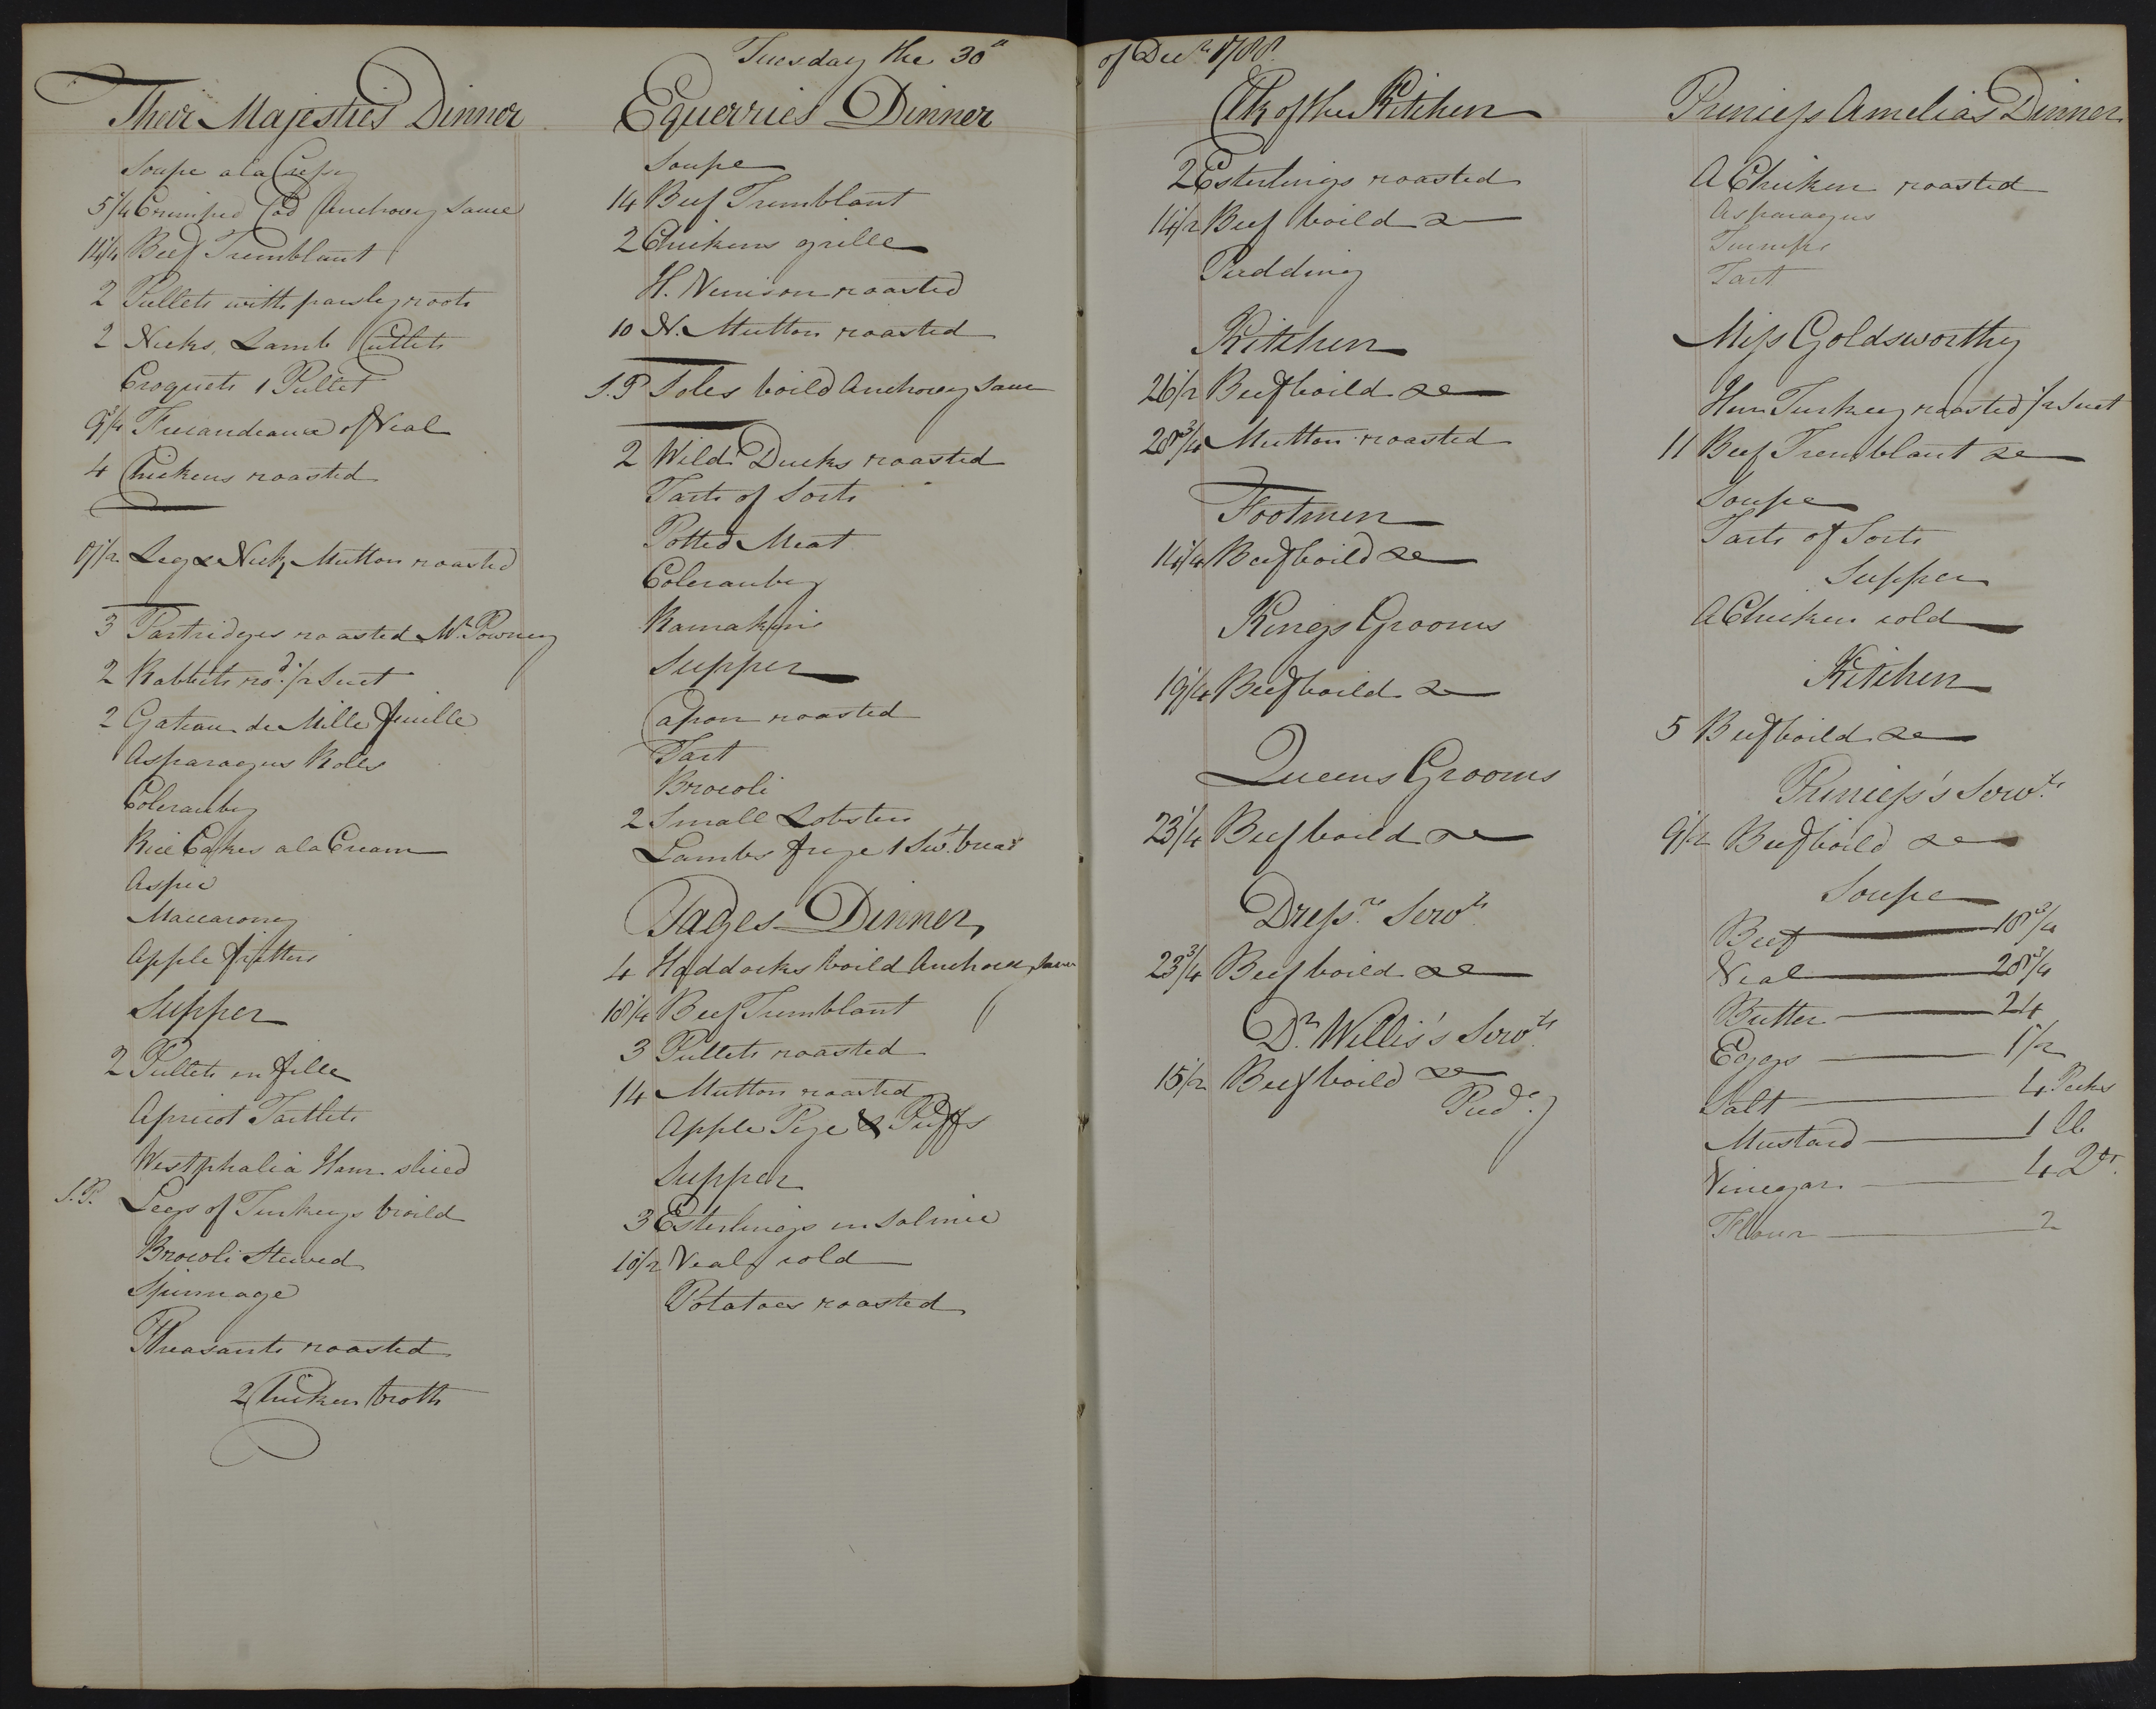 Tuesday the 30th of Decr 1788
Their Majesties Dinner
Soupe a la
5 1/4 Crimped Cod Anchovey Sauce
14 1/4 Beef Tremblant
2 Pullets with parsley roots
2 Necks, Lamb Cutlets
Croquets 1 Pullet
9 3/4 Fricandeaux of Veal
4 Chickens roasted
Leg & Neck Mutton roasted
3 Partridges roasted Mr. Powney
2 Rabbits rod. 1/2 Suet
2 Gateau de Mille feuille
Asparagus Rolls
Colerauby
Rice Cakes a la Cream
Aspic
Maccaroney
Apple fritters
Supper
2 Pullets en fille
Apricot Tartlets
Westphalia Ham sliced
S.P. Legs of Turkeys broild
Brocoli Stewed
Spinnage
Pheasants roasted
2 Chicken broth
Equerries Dinner
Soupe
14 Beef Tremblant
2 Chickens grille
H. Venison roasted
10 N. Mutton roasted
S.P Soles boild Anchovey Sauce
2 Wild Ducks roasted
Tarts of Sorts
Potted Meat
Colerauby
Ramakins
Supper
Capon roasted
Tart
Brocoli
2 Small Lobsters
Lambs frye 1 Swt. bread
Pages Dinner
4 Haddocks boild Anchovey Sauce
18 1/4 Beef Tremblant
3 Pullets roasted
14 Mutton roasted
Apple Pye & Puffs
Supper
3 Esterlings en Salmie
10 1/2 Veal cold
Potatoes roasted
Clk of the Kitchen
2 Esterlings roasted
14 1/2 Beef boild &
Pudding
Kitchen
26 1/2 Beef boild &c
28 3/4 Mutton roasted
Footmen
14 1/4 Beef boild &c
Kings Grooms
19 1/4 Beef boild &
Queens Grooms
23 1/4 Beef boild &c
Dressrs Servts
23 3/4 Beef boild &c
Dr. Willis's Servts
15 1/2 Beef boild &c
Pudg
Princess Amelias Dinner
A Chicken roasted
Asparagus
Turneps
Tart
Miss Goldsworthy
Hen Turkey roasted 1/2 Suet
11 Beef Tremblant &c
Soupe
Tarts of Sorts
Supper
A Chicken cold
Kitchen
5 Beef boild &c
Princess's Servts
9 1/2 Beef boild &c
Soupe
Beef 18 3/4
Veal 28 3/4
Butter 24
Eggs 1 1/2
Salt 4 Pecks
Mustard 1 lb
Vinegar 4 Qts.
Flour 2